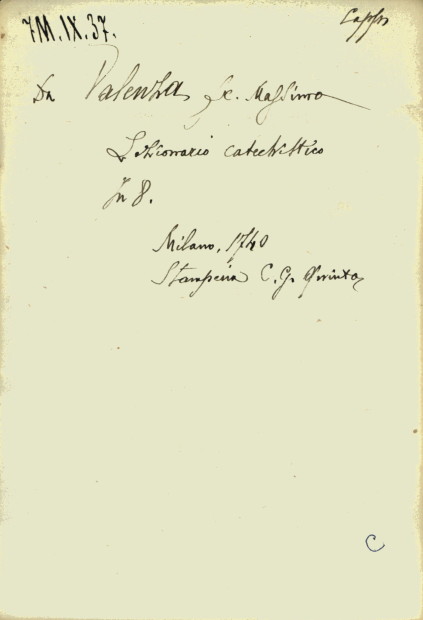 7M.IX.37.
Capp.
Da Valenza Fr. Massimo
Dizionario catechistico
In 8.
Milano, 1740
Stamperia C. G. Quinto
C